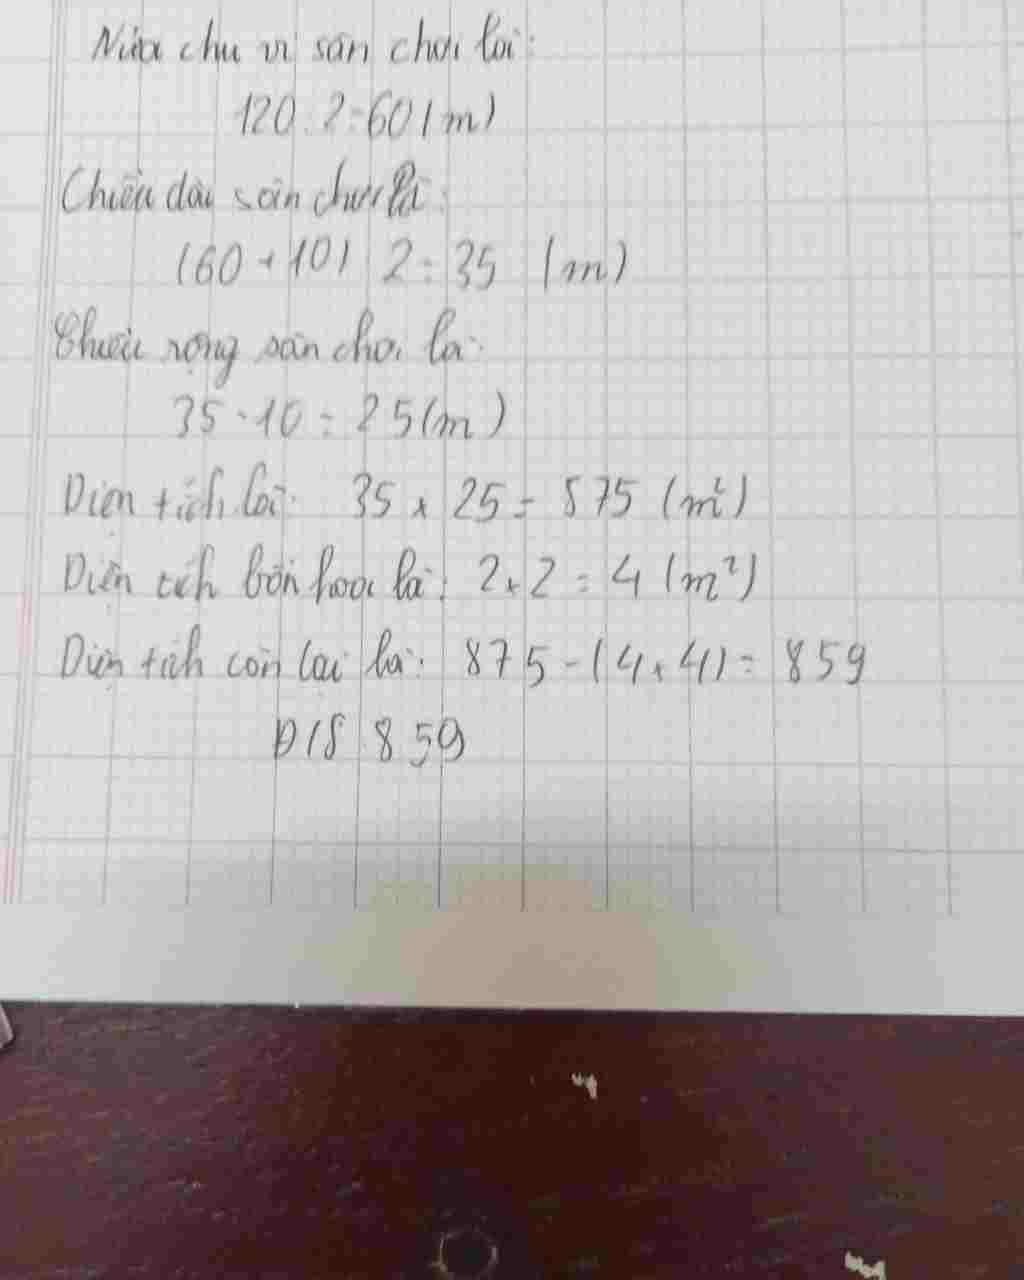 Nửa chu vi sân chơi là:
120 : 2 = 60 (m)
Chiều dài sân chơi là:
(60 + 10) : 2 = 35 (m)
Chiều rộng sân chơi là:
35 - 10 = 25 (m)
Diện tích là: 35 x 25 = 875 (m²)
Diện tích bồn hoa là: 2 x 2 = 4 (m²)
Diện tích còn lại là: 875 - (4 x 4) = 859
Đ/S: 859